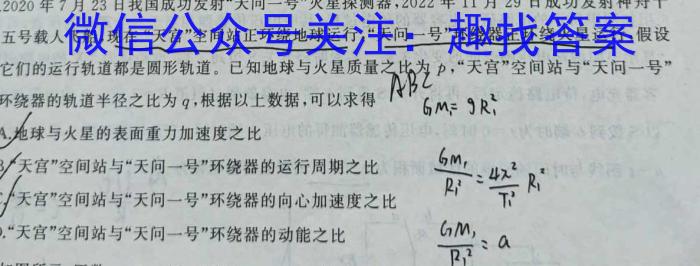 2020年7月23日我国成功发射“天问一号”火星探测器,2022年11月29日成功发射神舟十
五号载人飞船,现在“天宫”空间站正环绕地球运行,“天问一号”环绕器正环绕火星运行,假设
微信公众号关注:趣找答案
它们的运行轨道都是圆形轨道。已知地球与火星质量之比为p,“天宫”空间站与“天问一号”
环绕器的轨道半径之比为q,根据以上数据,可以求得
ABC
GM₁=gR₁²
A.地球与火星的表面重力加速度之比
B.“天宫”空间站与“天问一号”环绕器的运行周期之比
GM₁/R₁²=4π²/T₁² R₁²
C.“天宫”空间站与“天问一号”环绕器的向心加速度之比
D.“天宫”空间站与“天问一号”环绕器的动能之比
GM₁/R₁²=a